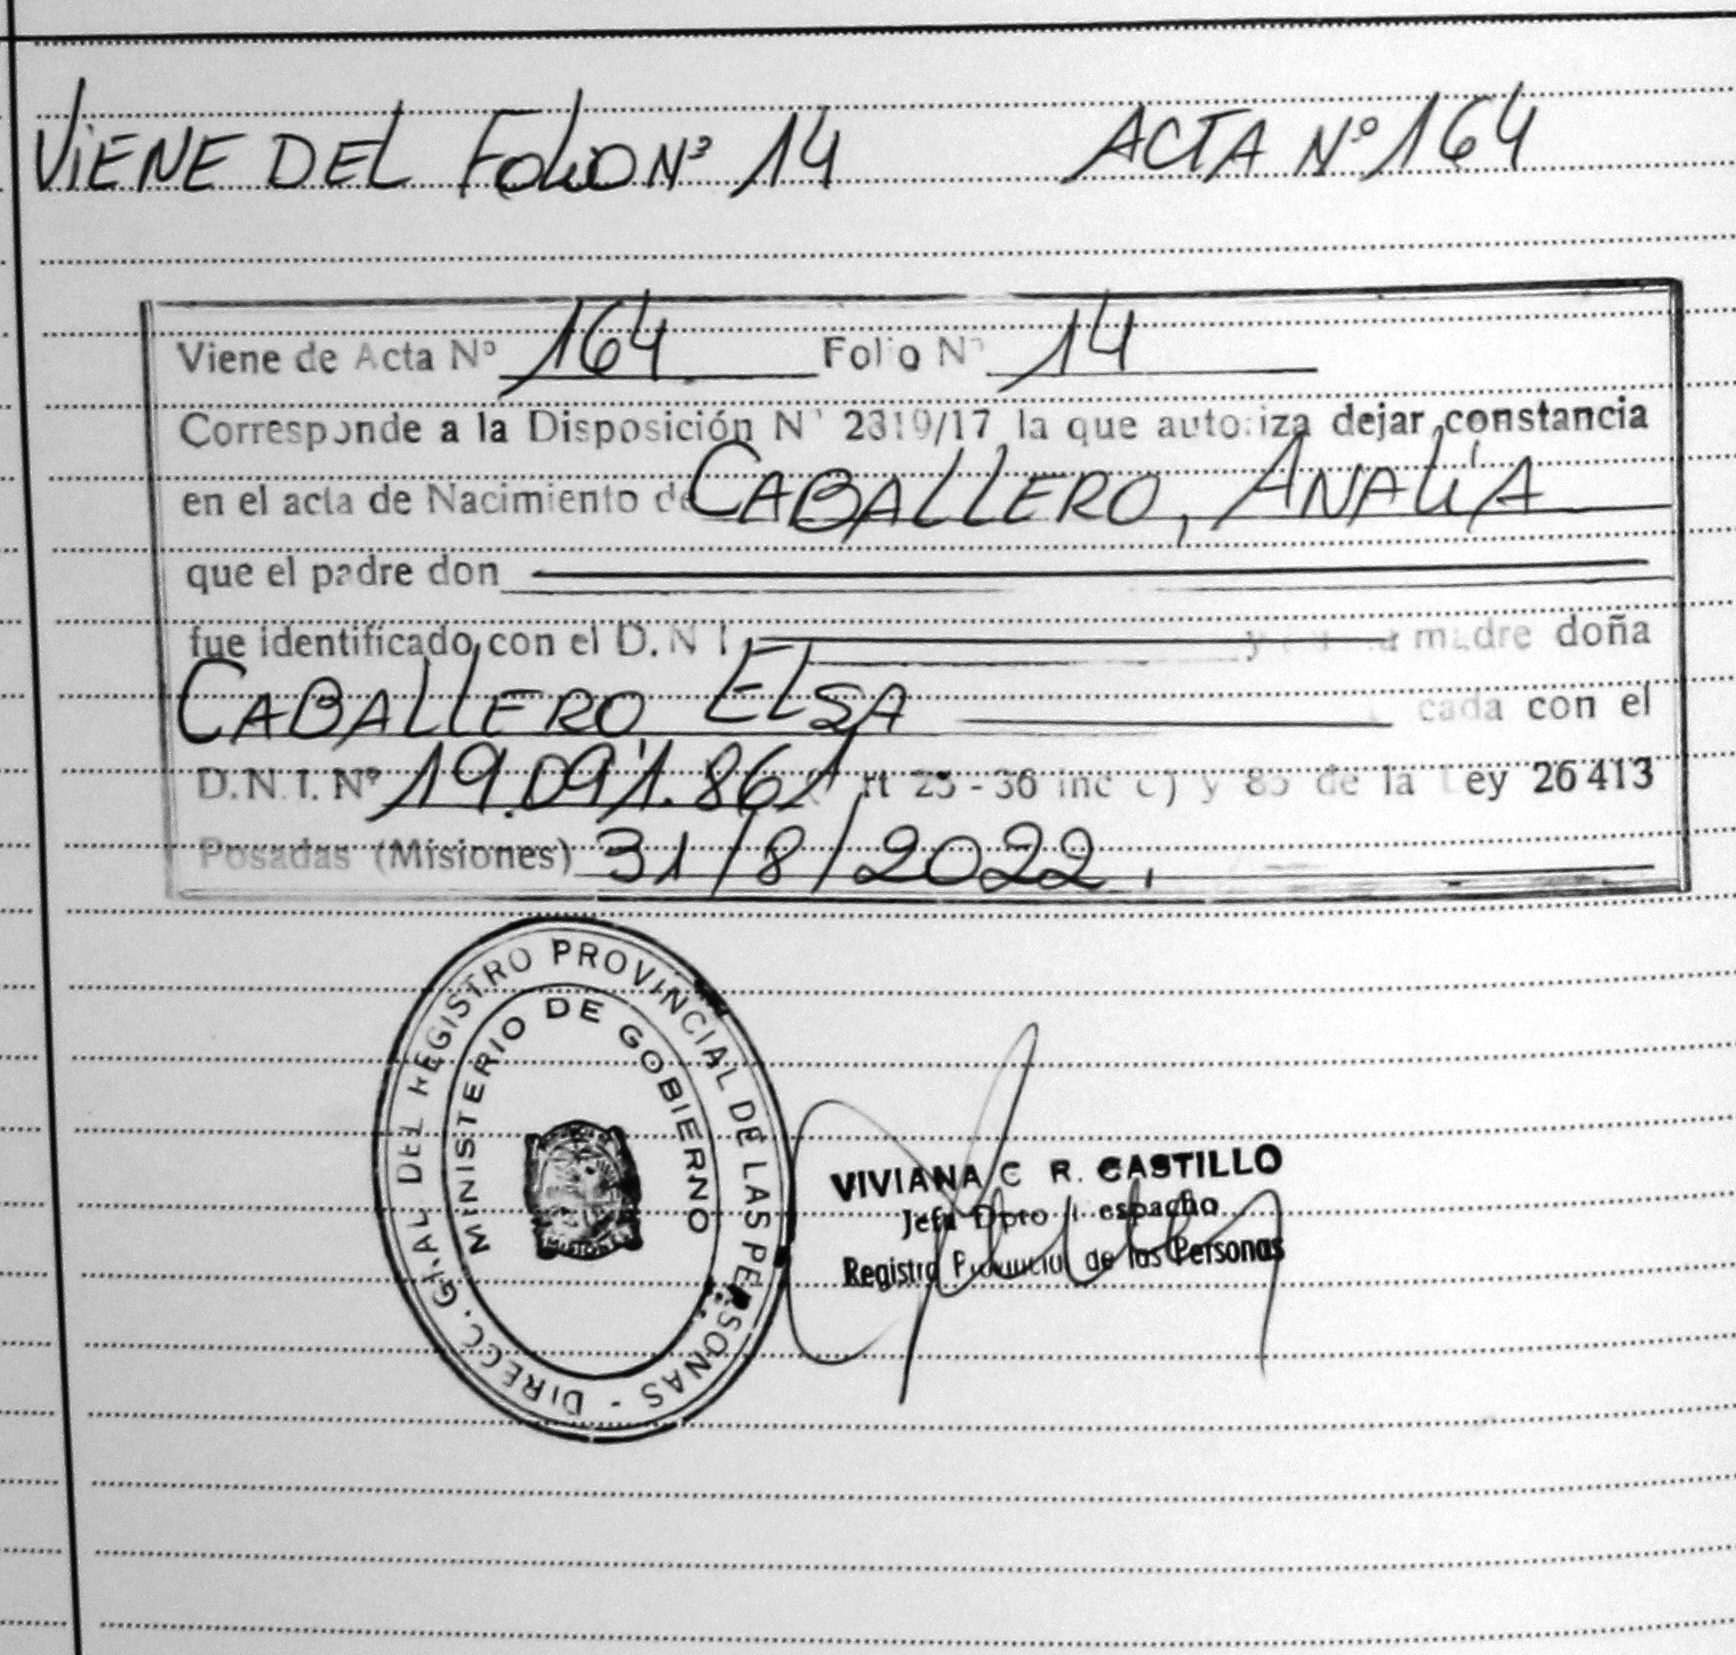 VIENE DEL FOLIO Nº 14 ACTA Nº 164
Viene de Acta Nº 164 Folio Nº 14
Corresponde a la Disposición Nº 2319/17 la que autoriza dejar constancia
en el acta de Nacimiento de CABALLERO, ANALÍA
que el padre don
fue identificado con el D.N.I. y madre doña
CABALLERO ELSA cada con el
D.N.I. Nº 19.091.861 rt 25-36 inc c) y 85 de la Ley 26413
Posadas (Misiones) 31/8/2022.
DIRECC. GRAL DEL REGISTRO PROVINCIAL DE LAS PERSONAS -
MINISTERIO DE GOBIERNO
MISIONES
VIVIANA C R. CASTILLO
Jefa Dpto espacho
Registro Provincial de las Personas